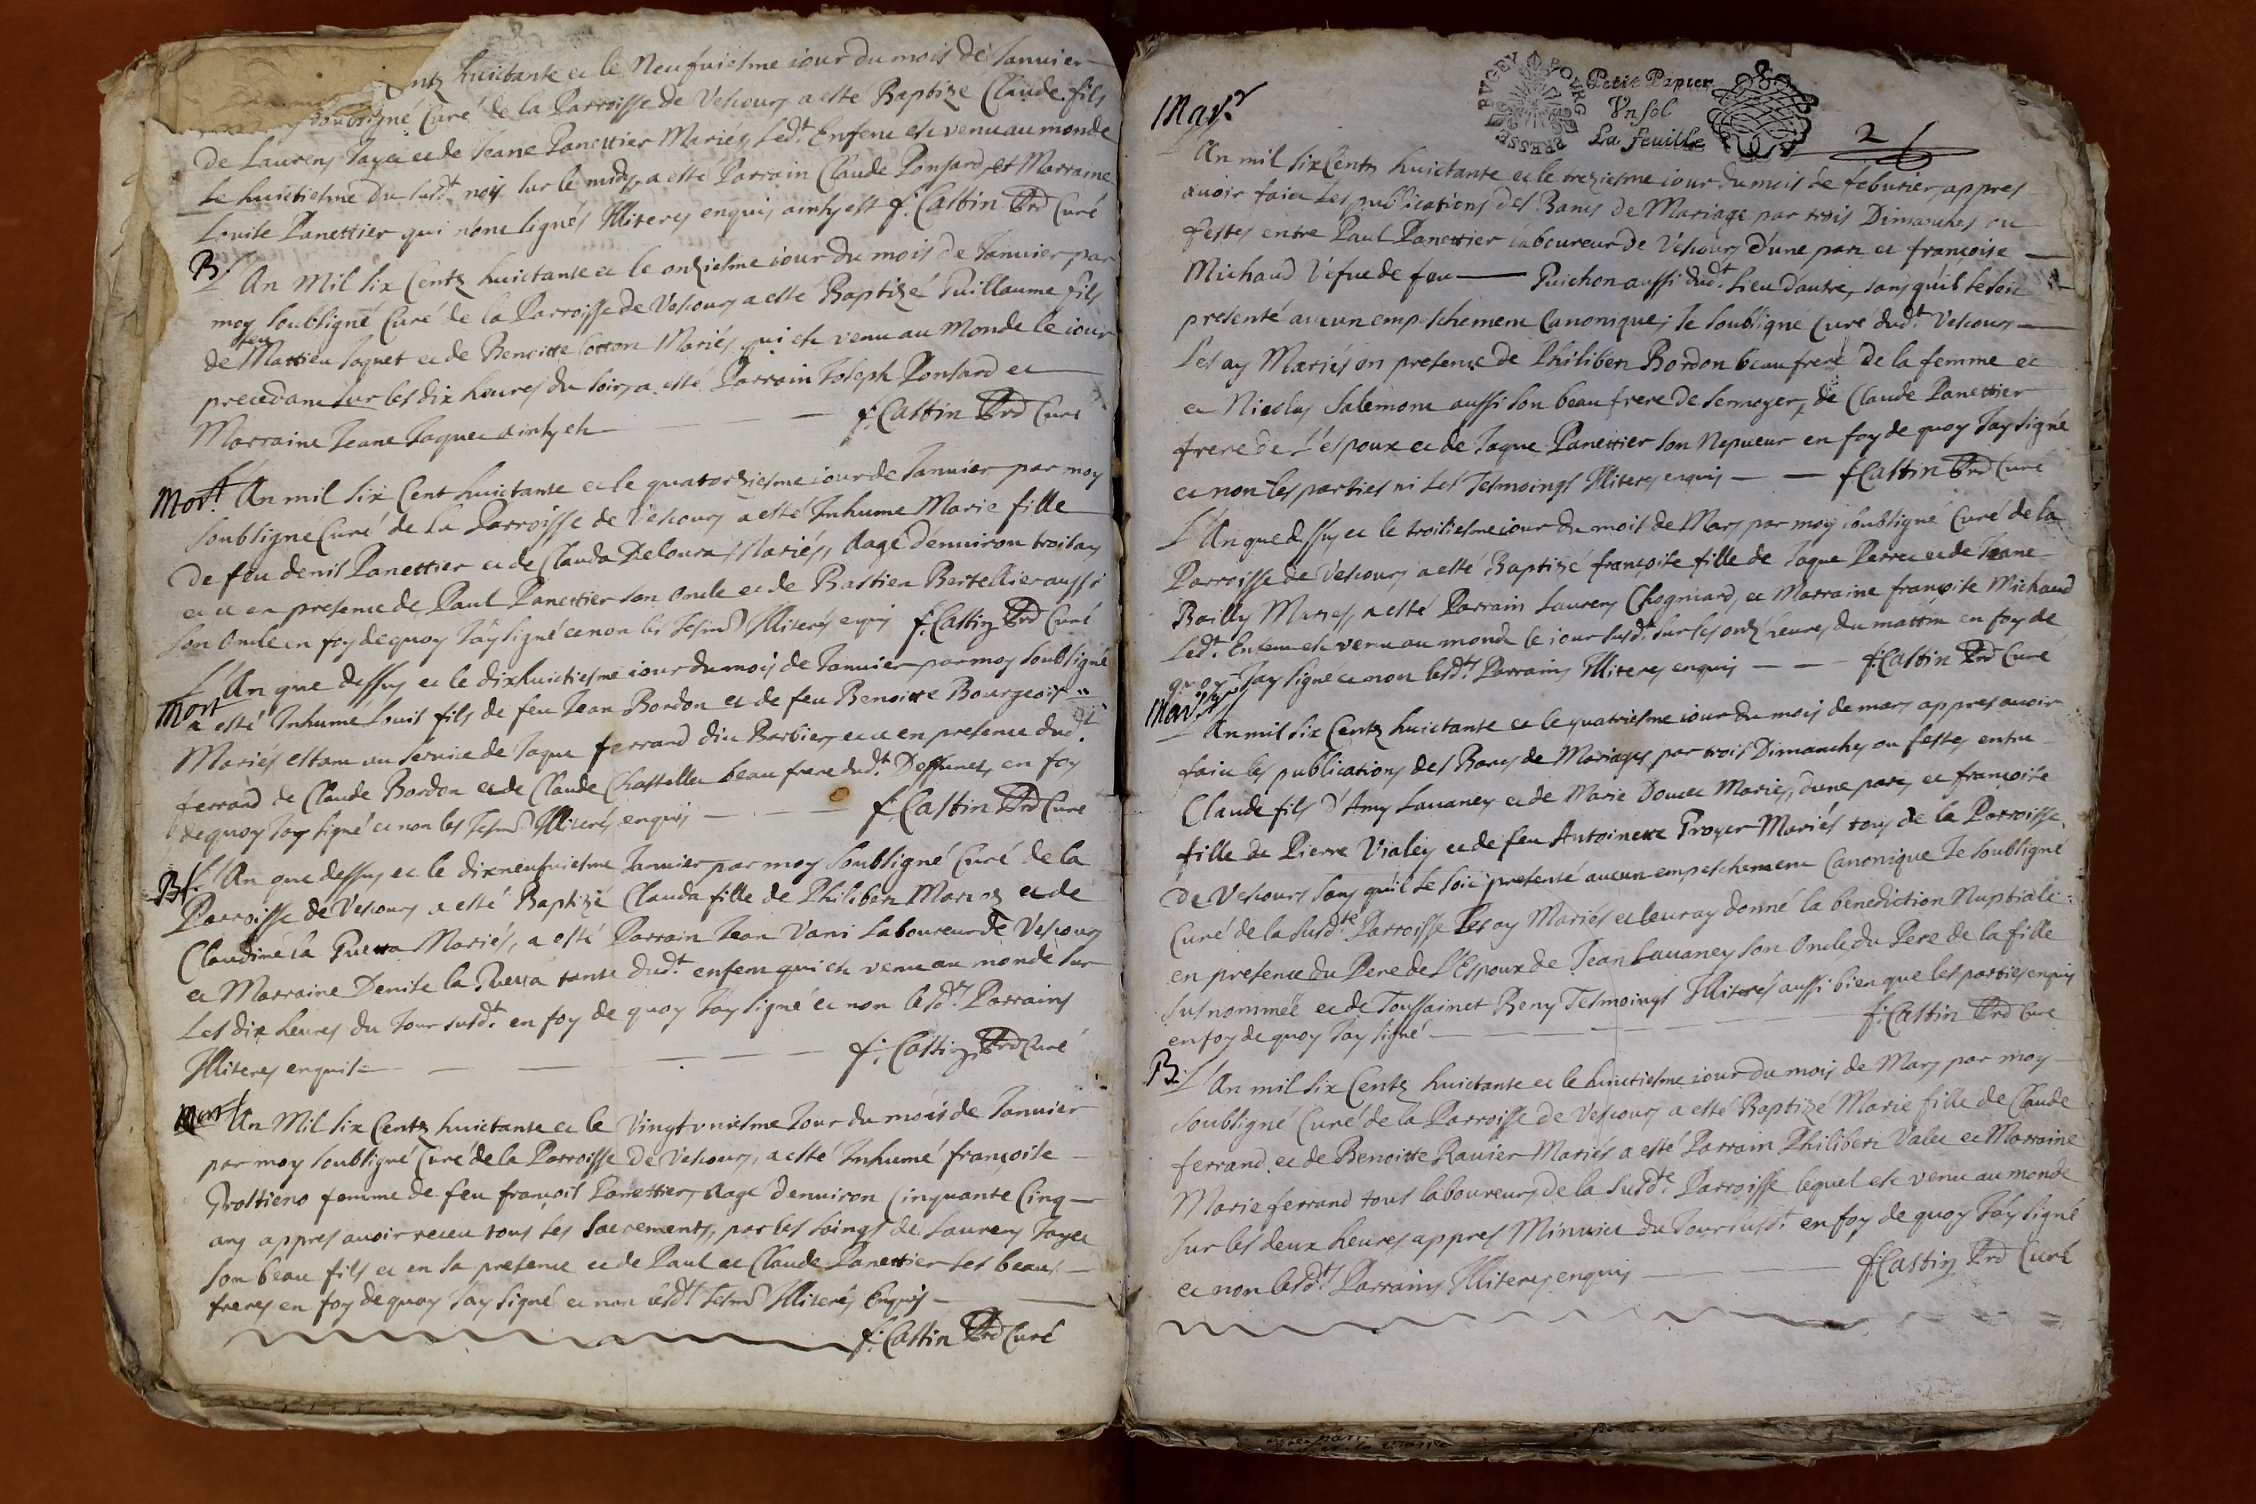 Centz huictante et le Neufuiesme iour du mois de Ianuier
soubsigné Curé de la Parroisse de Vescours a esté Baptize Claude fils
de Laurens Jayet et de Jeane Panettier Mariés, Ledt. Enfent est venu au monde
Le huictiesme du susdt. mois sur le midy, a esté Parrain Claude Ponsard et Marraine
Louise Panettier qui n'ont signés Illiteres enquis ainsy est f. Castin Prd Curé
B. L'An Mil six Centz huictante et le onziesme iour du mois de Ianuier par
moy soubsigné Curé de la Parroisse de Vescours a esté Baptizé Guillaume fils
de feu Mattieu Jaquet et de Benoitte Cotton Mariés, qui est venu au Monde le iour
precedant sur les dix heures du soir, a esté Parrain Joseph Ponsard et
Marraine Jeane Jaquet ainsy est f. Castin Prd Curé
Mort. L'An mil six Cent huictante et le quatorziesme iour de Ianuier par moy
soubsigné Curé de la Parroisse de Vescours a esté Inhumé Marie fille
de feu denis Panettier et de Clauda Deloura Mariés, Aagé d'enuiron trois ans
et ce en presence de Paul Panettier son Oncle et de Bastien Bertellier aussi
son Oncle en foy de quoy J'ay signé et non les Tesms. Illiterés enquis f. Castin Prd Curé
L'An que dessus et le dixhuictiesme iour du mois de Ianuier par moy soubsigné
Mort a esté Inhumé Louis fils de feu Jean Bordon et de feu Benoitte Bourgeois
Mariés estant au seruice de Jaque ferrand dict Barbier, et ce en presence dudt.
ferrand de Claude Bordon et de Claude Chastellet beau frere dudt. Deffunct, en foy
de quoy J'ay signé et non les Tesms. Illiterés enquis f. Castin Prd Curé
Bt. L'An que dessus et le dixneufuiesme Ianuier par moy soubsigné Curé de la
Parroisse de Vescours a esté Baptizé Clauda fille de Philibert et de
Claudine La Guerra Mariés, a esté Parrain Jean Vani Laboureur de Vescours
et Marraine Denise la Guerra tante dudt. enfent qui est venu au monde sur
Les dix heures du Jour susdt. en foy de quoy J'ay signé et non lesdts. Parrains
Illiteres enquis f. Castin Prd Curé
Mort L'An Mil six Centz huictante et le Vingt vniesme Jour du mois de Ianuier
par moy soubsigné Curé de la Parroisse de Vescours, a esté Inhumé françoise
femme de feu françois Panettier, Aagé d'enuiron Cinquante Cinq
ans appres auoir receu tous les Sacrements, par les soings de Laurens Jayet
son beau fils et en sa presence et de Paul et Claude Panettier ses beaux
freres en foy de quoy J'ay signé et non lesdts. Tesms. Illiterés Enquis
f. Castin Prd Curé
BVGEY BOVRG BRESSE
Petit Papier
Vn sol
La feuille
2
Mar.
L'An mil six Centz huictante et le treziesme iour du mois de feburier, appres
auoir faict les publications des Bancs de Mariage par trois Dimanches ou
festes entre Paul Panettier laboureur de Vescours d'une part et françoise
Michaud Vefue de feu Guichon aussi dudt. Lieu d'autre, sans qu'il se soit
presenté aucun empeschement Canonique; Je soubsigné Curé dudt. Vescours
Les ay Mariés en presence de Philibert Bordon beau frere de la femme et
et Nicolas Salemont aussi son beau frere de sermoyer, de Claude Panettier
frere de L'espoux et de Jaque Panettier son Nepueur en foy de quoy J'ay signé
et non les parties ni les Tesmoings Illiteres enquis f. Castin Prd Curé
L'An que dessus et le troisiesme iour du mois de Mars par moy soubsigné Curé de la
Parroisse de Vescours a esté Baptizé françoise fille de Jaque Perret et de Jeane
Bailly Mariés, a esté Parrain Laurens Chogniard, et Marraine françoise Michaud
Ledt. Enfent est venu au monde le iour susdt. sur les onze heures du mattin en foy de
quoy J'ay signé et non lesdts. Parrains Illiteres enquis f. Castin Prd Curé
Mar.
L'An mil six Centz huictante et le quatriesme iour du mois de mars appres auoir
faict les publications des Bancs de Mariages, par trois Dimanches ou festes entre
Claude fils d'Amy Lauaney et de Marie Doucet Mariés, d'une part, et françoise
fille de Pierre Vialey et de feu Antoinette Troyer Mariés tous de la Parroisse
de Vescours sans qu'il se soit presenté aucun empeschement Canonique Je soubsigné
Curé de la susdte. Parroisse Les ay Mariés et leur ay donné la benediction Nuptiale
en presence du Pere de L'Espoux de Jean Lauaney son Oncle, du Pere de la fille
susnommée et de Toussainct Beny Tesmoings Illiterés aussi bien que les parties enquis
en foy de quoy J'ay signé f. Castin Prd Curé
B. L'An mil six Centz huictante et le huictiesme iour du mois de Mars par moy
soubsigné Curé de la Parroisse de Vescours a esté Baptizé Marie fille de Claude
ferrand et de Benoitte Rauier Mariés a esté Parrain Philibert Valet et Marraine
Marie ferrand tous laboureurs de la susdte. Parroisse lequel est venu au monde
sur les deux heures appres Minuict du Jour susdt. en foy de quoy J'ay signé
et non lesdts. Parrains Illiteres enquis f. Castin Prd Curé